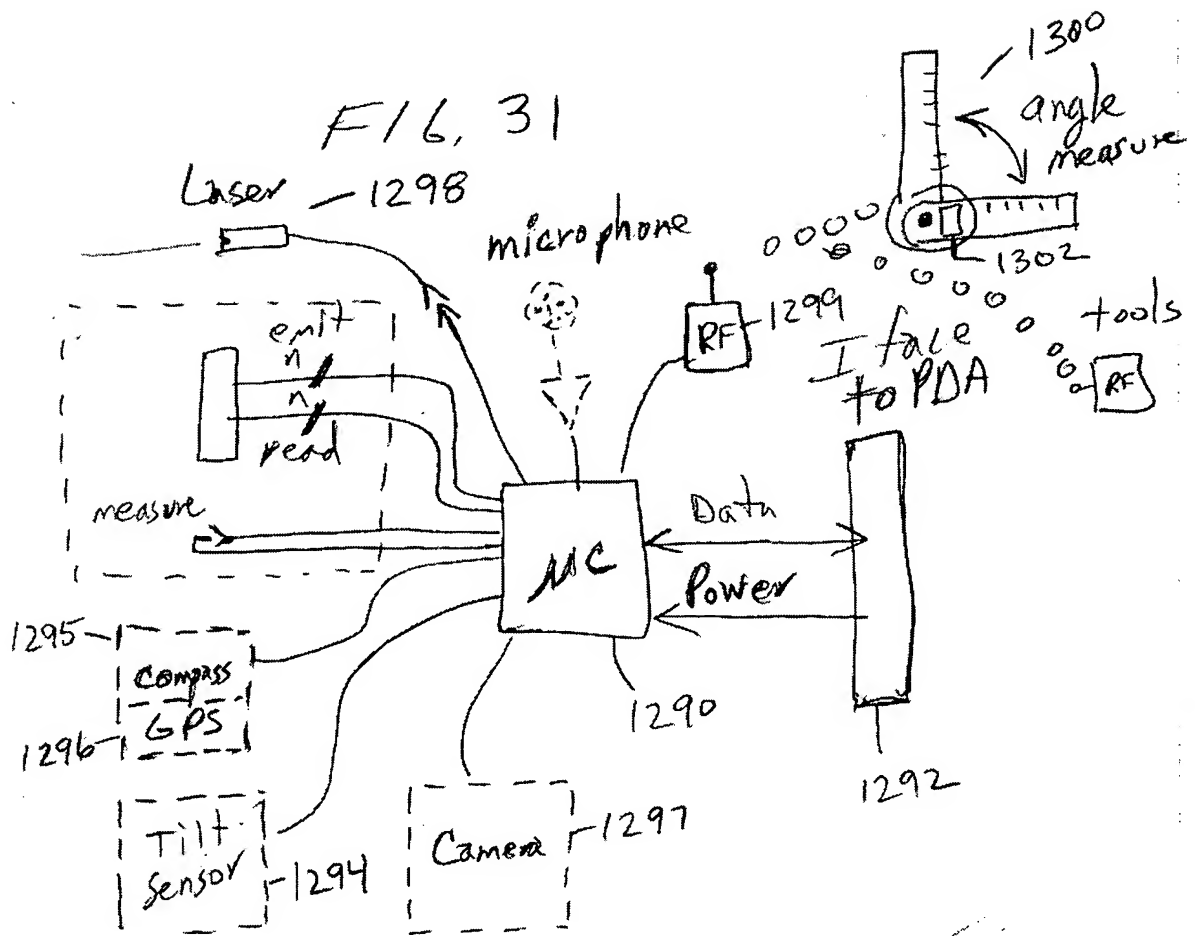 FIG. 31
1300
angle
measure
Laser
1298
microphone
1302
RF
1299
I face
to PDA
tools
RF
emit
n
n
read
measure
Data
μC
Power
1295
Compass
GPS
1296
1290
1292
Tilt
Sensor
1294
Camera
1297